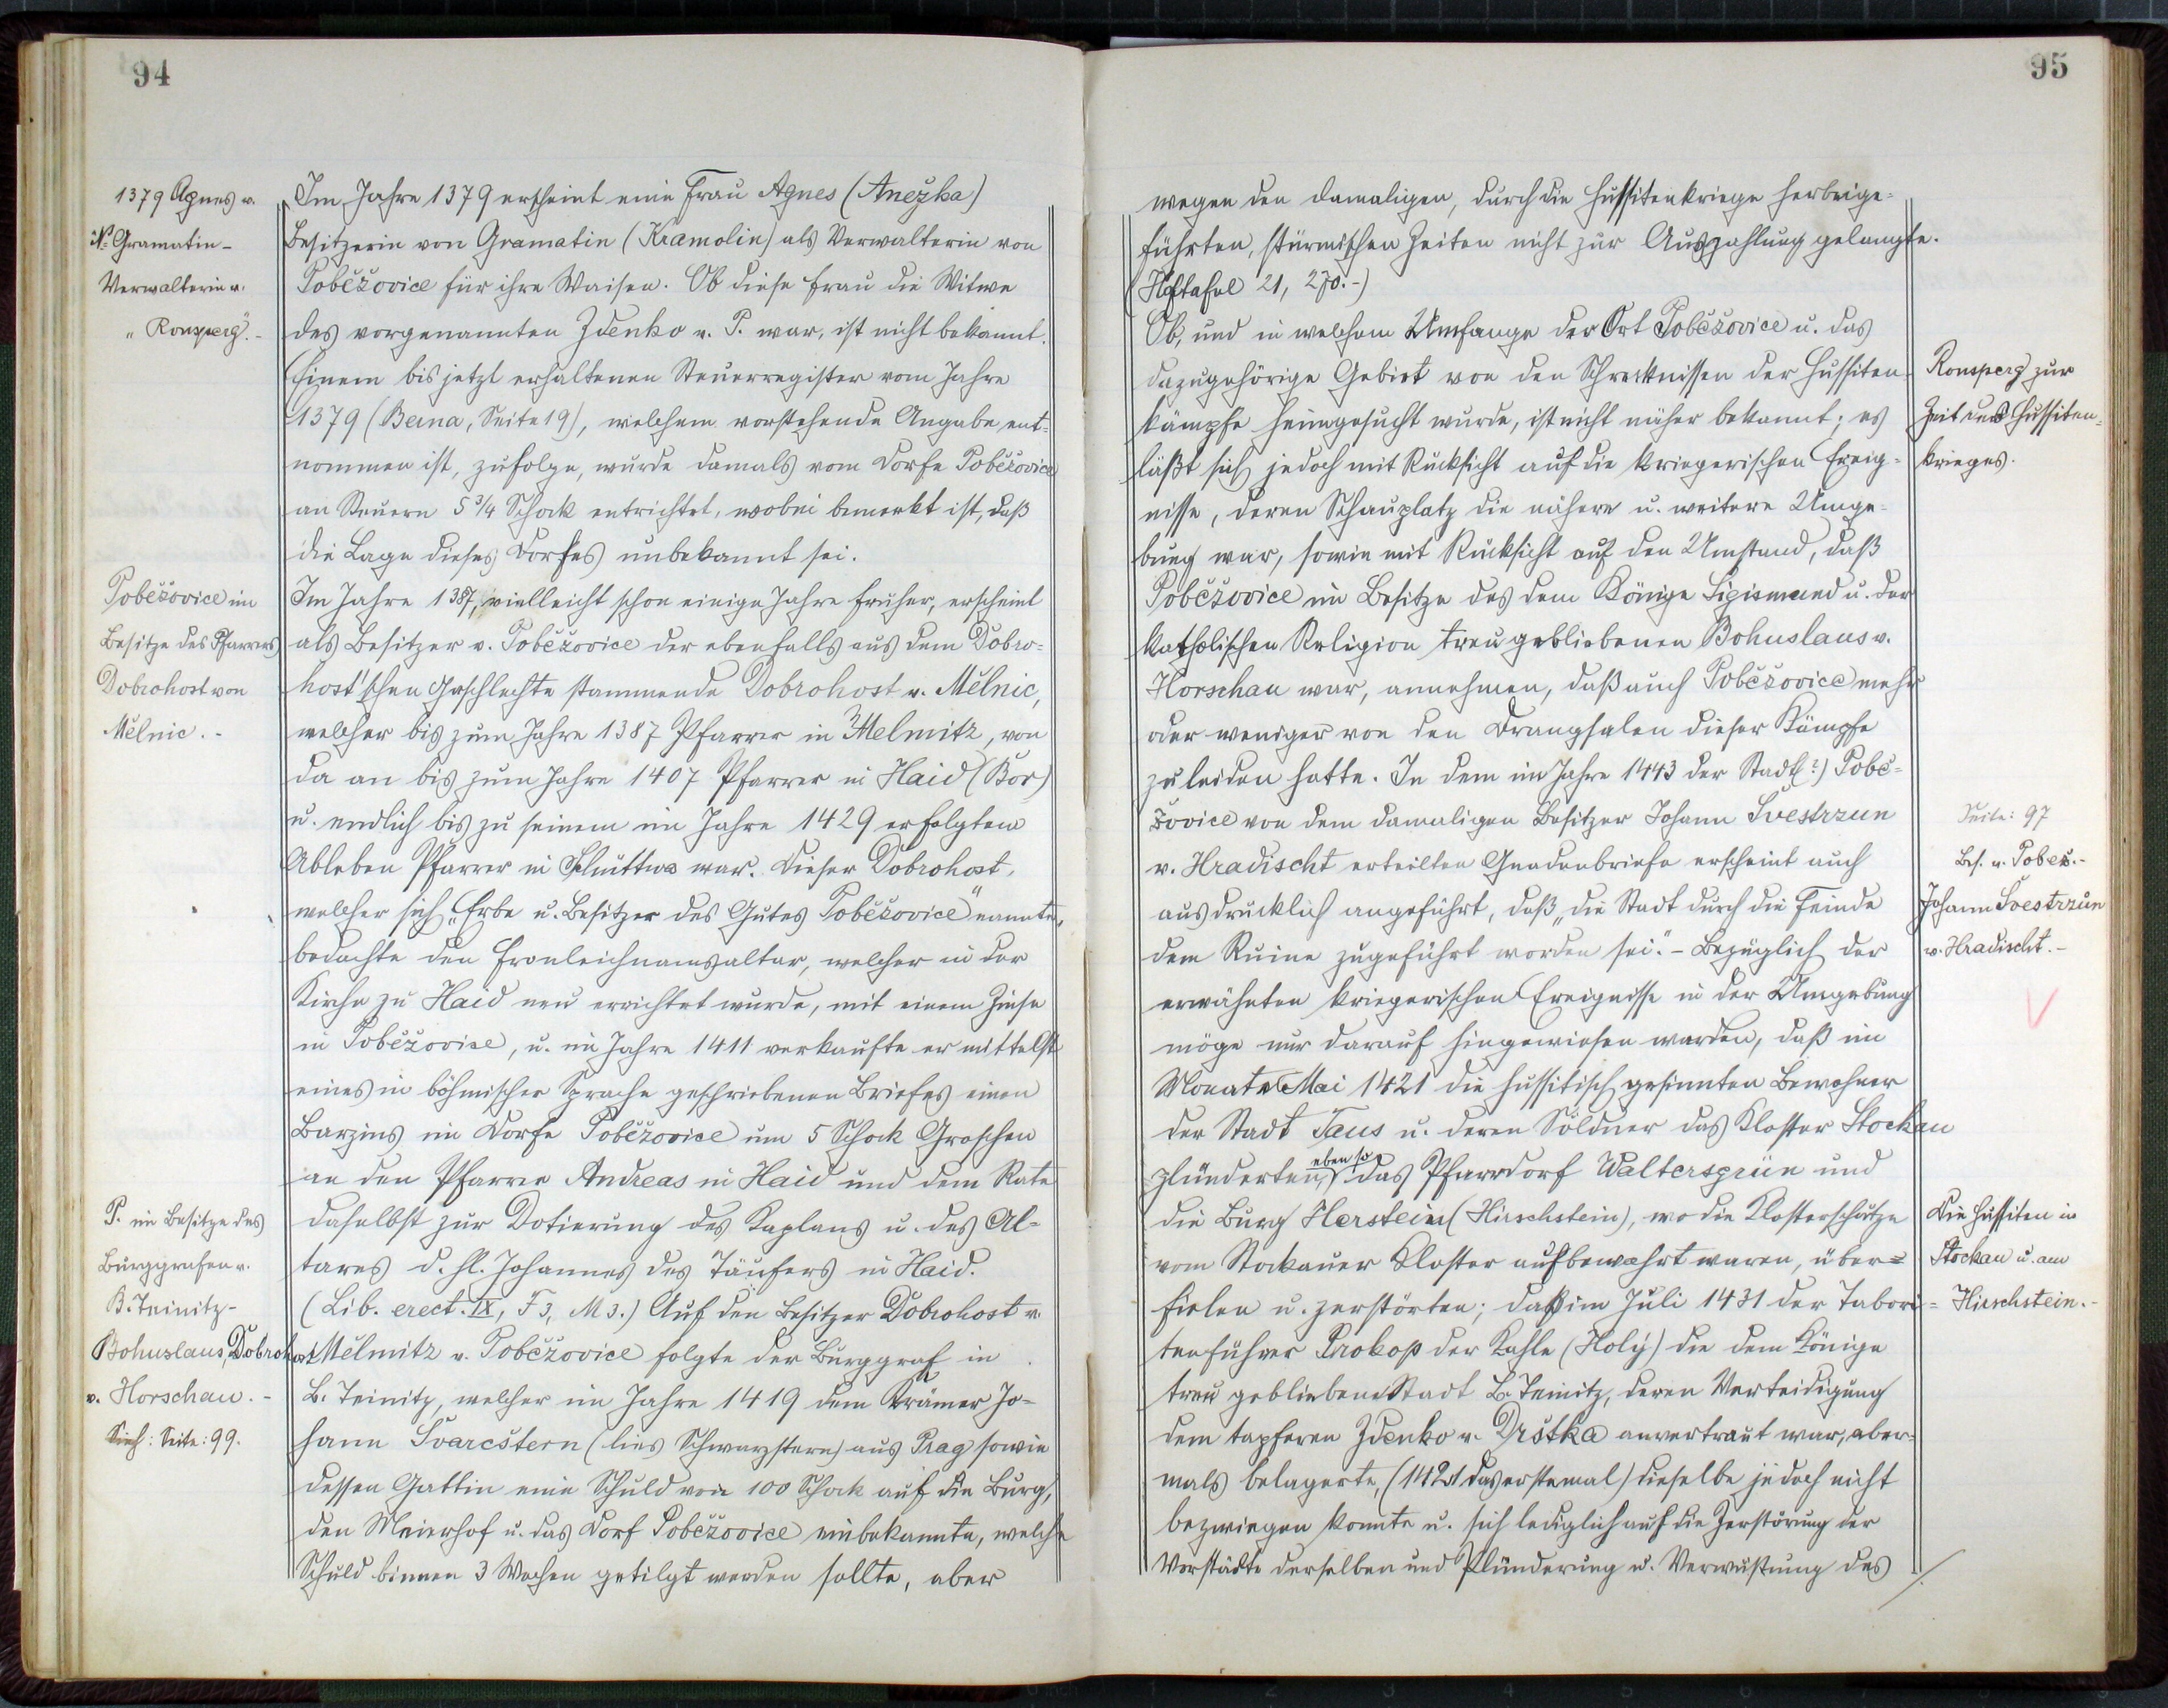 94
1379 Agnes v.
Gramatin-
Verwalterin v.
"Ronsperg".-
Im Jahre 1379 erscheint eine Frau Agnes (Anežka)
Besitzerin von Gramatin (Kramolin) als Verwalterin von
Poběžovice für ihre Waisen. Ob diese Frau die Witwe
des vorgenannten Zdenko v. P. war, ist nicht bekannt.
Einem bis jetzt erhaltenen Steuerregister vom Jahre
1379 (Berna, Seite 19), welchem vorstehende Angabe ent=
nommen ist, zufolge, wurde damals vom Dorfe Poběžovice
an Steuern 5 3/4 Schock entrichtet, wobei bemerkt ist, daß
die Lage dieses Dorfes unbekannt sei.
Poběžovice im
Besitze des Pfarrers
Dobrohost von
Mělnic.-
Im Jahre 1387, vielleicht schon einige Jahre früher, erscheint
als Besitzer v. Poběžovice der ebenfalls aus dem Dobro=
host'schen Geschlechte stammende Dobrohost v. Mělnic,
welcher bis zum Jahre 1387 Pfarrer in Melmitz, von
da an bis zum Jahre 1407 Pfarrer in Haid (Bor)
u. endlich bis zu seinem im Jahre 1429 erfolgten
Ableben Pfarrer in Schüttwa war. Dieser Dobrohost,
welcher sich „Erbe u. Besitzer des Gutes Poběžovice" nannte,
bedachte den Fronleichnamsaltar, welcher in der
Kirche zu Haid neu errichtet wurde, mit einem Zinse
in Poběžovice, u. im Jahre 1411 verkaufte er mittelst
eines in böhmischer Sprache geschriebenen Briefes einen
Barzins im Dorfe Poběžovice um 5 Schock Groschen
an den Pfarrer Andreas in Haid und dem Rate
daselbst zur Dotierung des Kaplans u. des Al=
tares d. hl. Johannes des Täufers in Haid.
P. im Besitze des
Burggrafen v.
B. Teinitz-
Bohuslaus, Dobrohost
v. Horschau.-
Sieh: Seite: 99.
(Lib. erect. IX, F3, M3.) Auf den Besitzer Dobrohost v.
Mělmitz v. Poběžovice folgte der Burggraf in
B. Teinitz, welcher im Jahre 1419 dem Krämer Jo=
hann Švarcštern (lies Schwarzstern) aus Prag sowie
dessen Gattin eine Schuld von 100 Schock auf die Burg,
den Meierhof u. das Dorf Poběžovice einbekannte, welche
Schuld binnen 3 Wochen getilgt werden sollte, aber
95
wegen den damaligen, durch die Hussitenkriege herbeige=
führten, stürmischen Zeiten nicht zur Auszahlung gelangte.
(Hoftafel 21, 270.-)
Ob, und in welchem Umfange der Ort Poběžovice u. das
dazugehörige Gebiet von den Schrecknissen der Hussiten=
kämpfe heimgesucht wurde, ist nicht näher bekannt; es
läßt sich jedoch mit Rücksicht auf die kriegerischen Ereig=
nisse, deren Schauplatz die nähere u. weitere Umge=
bung war, sowie mit Rücksicht auf den Umstand, daß
Poběžovice im Besitze des dem Könige Sigismund u. der
katholischen Religion treu gebliebenen Bohuslaus v.
Horschau war, annehmen, daß auch Poběžovice mehr
oder weniger von den Drangsalen dieser Kämpfe
zu leiden hatte. In dem im Jahre 1443 der Stadt(?) Pobě=
žovice von dem damaligen Besitzer Johann Švestrzun
v. Hradischt erteilten Gnadenbriefe erscheint auch
ausdrücklich angeführt, daß „die Stadt durch die Feinde
dem Ruine zugeführt worden sei." - Bezüglich der
erwähnten kriegerischen Ereignisse in der Umgebung
möge nur darauf hingewiesen werden, daß im
Monate Mai 1421 die hussitisch gesinnten Bewohner
der Stadt Taus u. deren Söldner das Kloster Stockau
plünderten, ebenso das Pfarrdorf Waltersgrün und
die Burg Herstein (Hirschstein), wo die Klosterschätze
vom Stockauer Kloster aufbewahrt waren, über=
fielen u. zerstörten; daß im Juli 1431 der Tabori=
tenführer Prokop der Kahle (Holý) die dem Könige
treu gebliebene Stadt B. Teinitz, deren Verteidigung
dem tapferen Zdenko v. Drštka anvertraut war, aber=
mals belagerte, (1421 das erstemal) dieselbe jedoch nicht
bezwingen konnte u. sich lediglich auf die Zerstörung der
Vorstädte derselben und Plünderung u. Verwüstung des
Ronsperg zur
Zeit des Hussiten=
krieges.
Seite: 97
Bes. v. Pobež.-
Johann Švestrzun
v. Hradischt.-
Die Hussiten in
Stockau u. am
Hirschstein.-